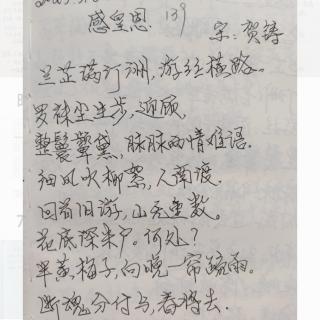 感皇恩 139
宋：贺铸
兰芷满汀洲，游丝横路。
罗袜尘生步，迎顾，
整鬟颦黛，脉脉两情难语。
细风吹柳絮，人南渡。
回首旧游，山无重数。
花底深朱户。何处？
半黄梅子，向晚一帘疏雨。
断魂分付与，春将去。